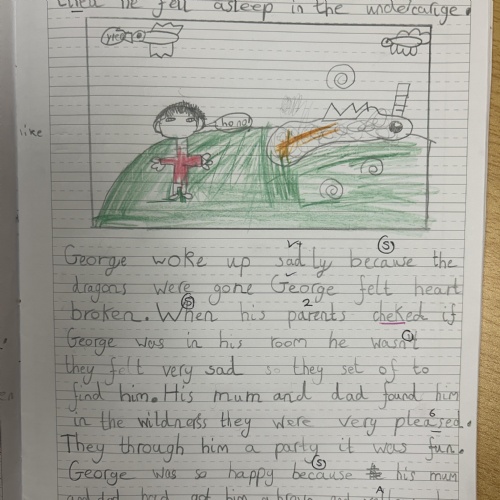 then he fell asleep in the undercarige.
yes
ho no!
like
George woke up sadly becauwe the
dragons were gone George felt heart
broken. When his parents cheked if
George was in his room he wasn't
they felt very sad so they set of to
find him. His mum and dad found him
in the wildness they were very pleased.
They through him a party it was fun.
George was so happy because his mum
and dad had got him a